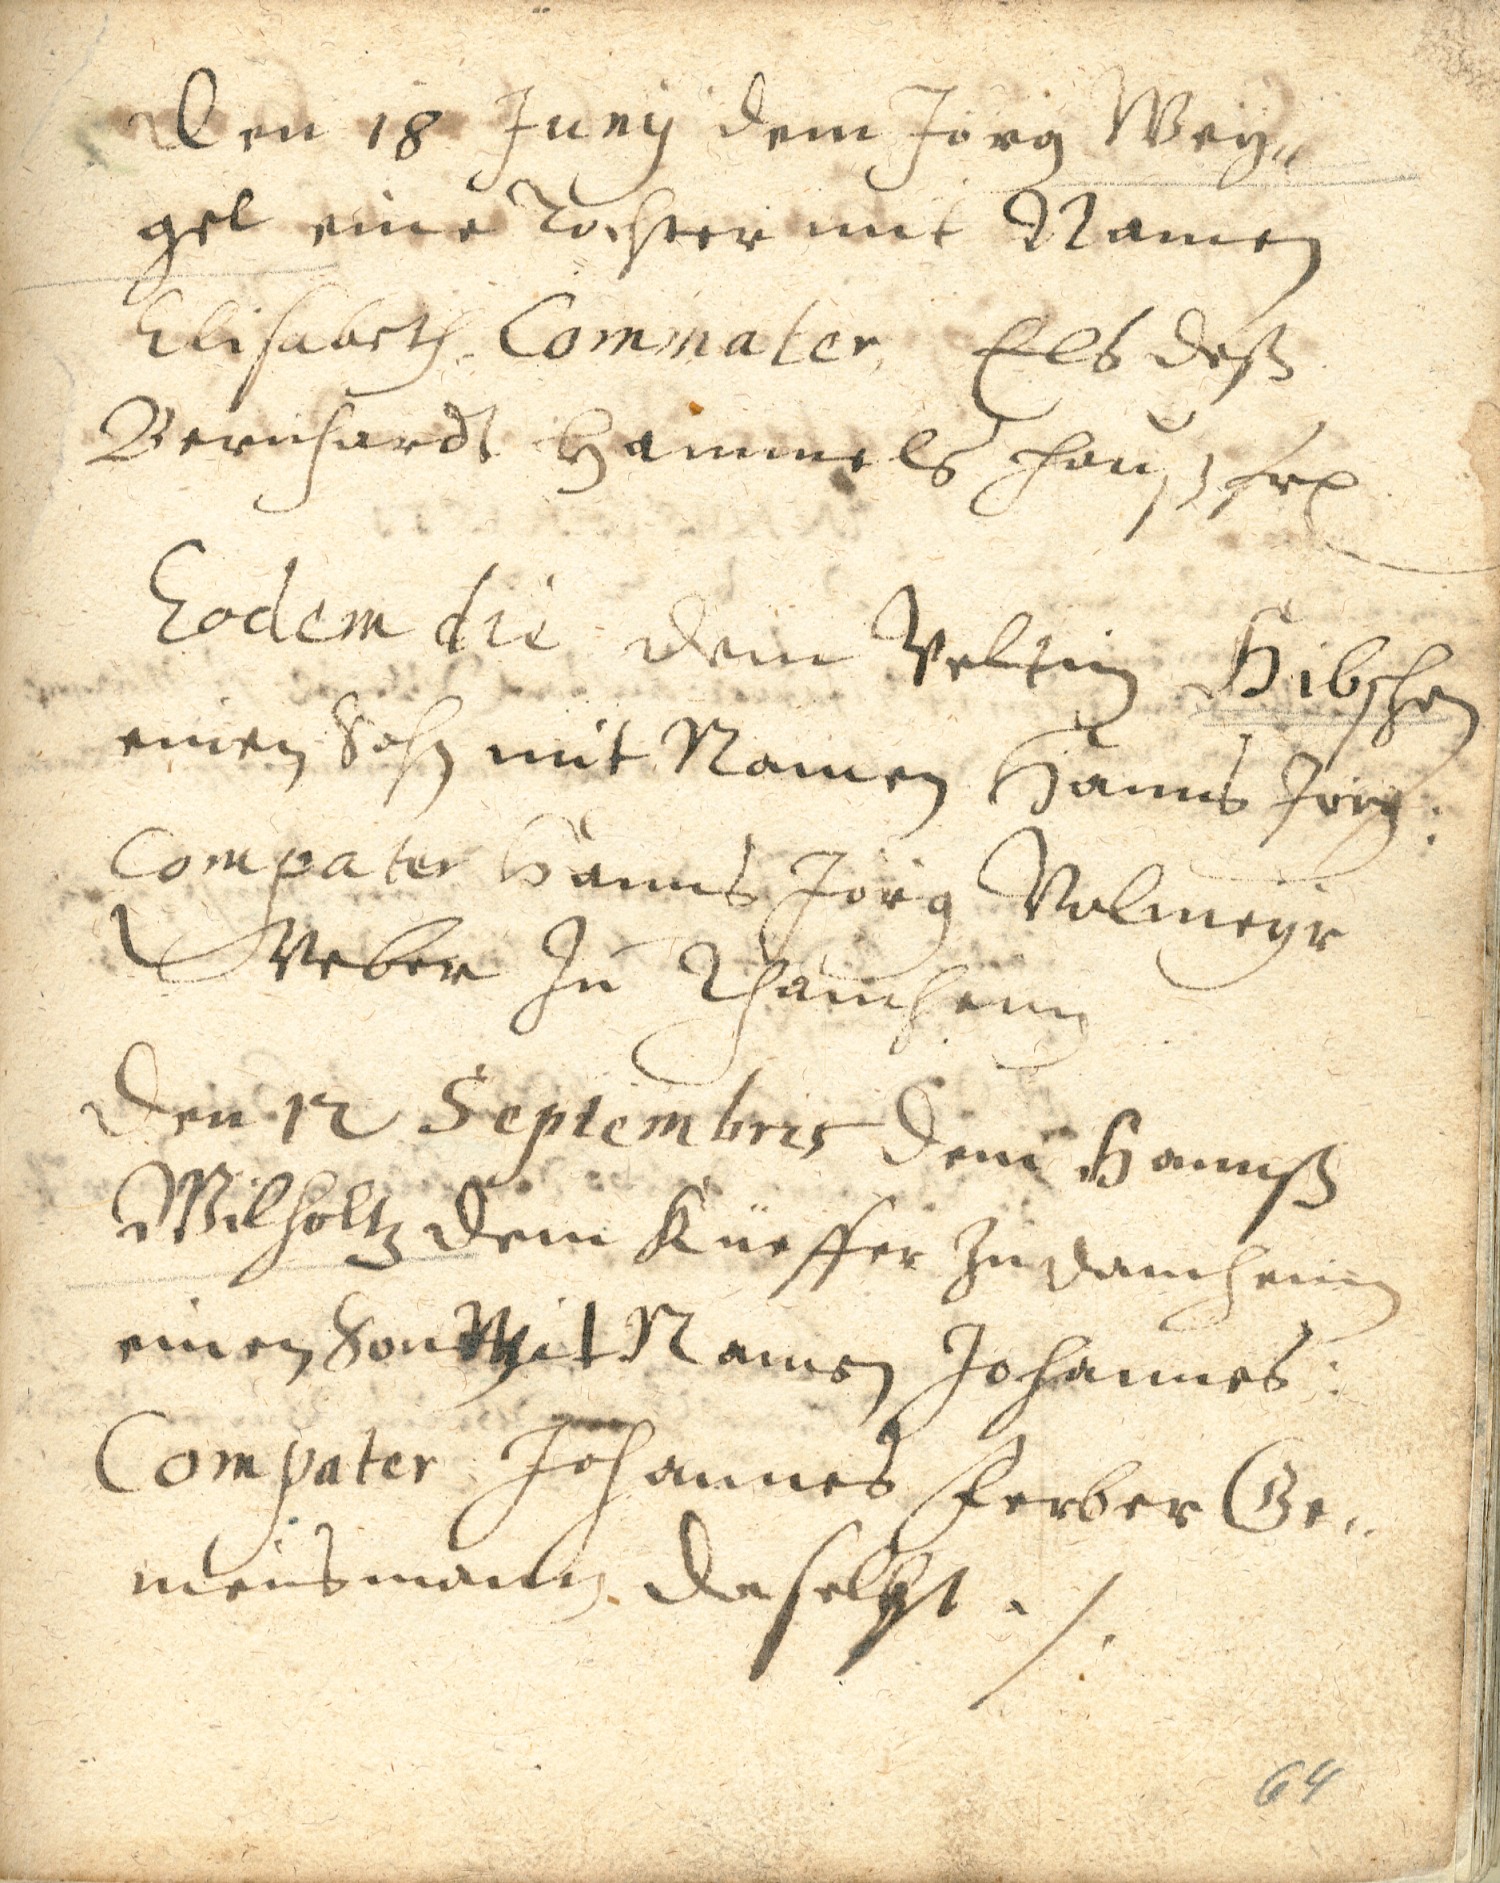 Den 18 Junij dem Jörg Wey„
gel eine Tochter mit Namen
Elisabeth. Commater, Els deß
Bernhardt Hammels haußfr
Eodem die dem Veltin Hibschen
einen Sohn mit Namen Hanns Jörg:
Compater Hanns Jörg Volmeyr
Weber zu Thamheim
Den 12 Septembris dem Hannß
Wilholtz dem Küeffer zu Damheim
einen Son Mit Namen Johannes:
Compater Johannes Ferber Ge„
meinsmann daselbst ./.
64